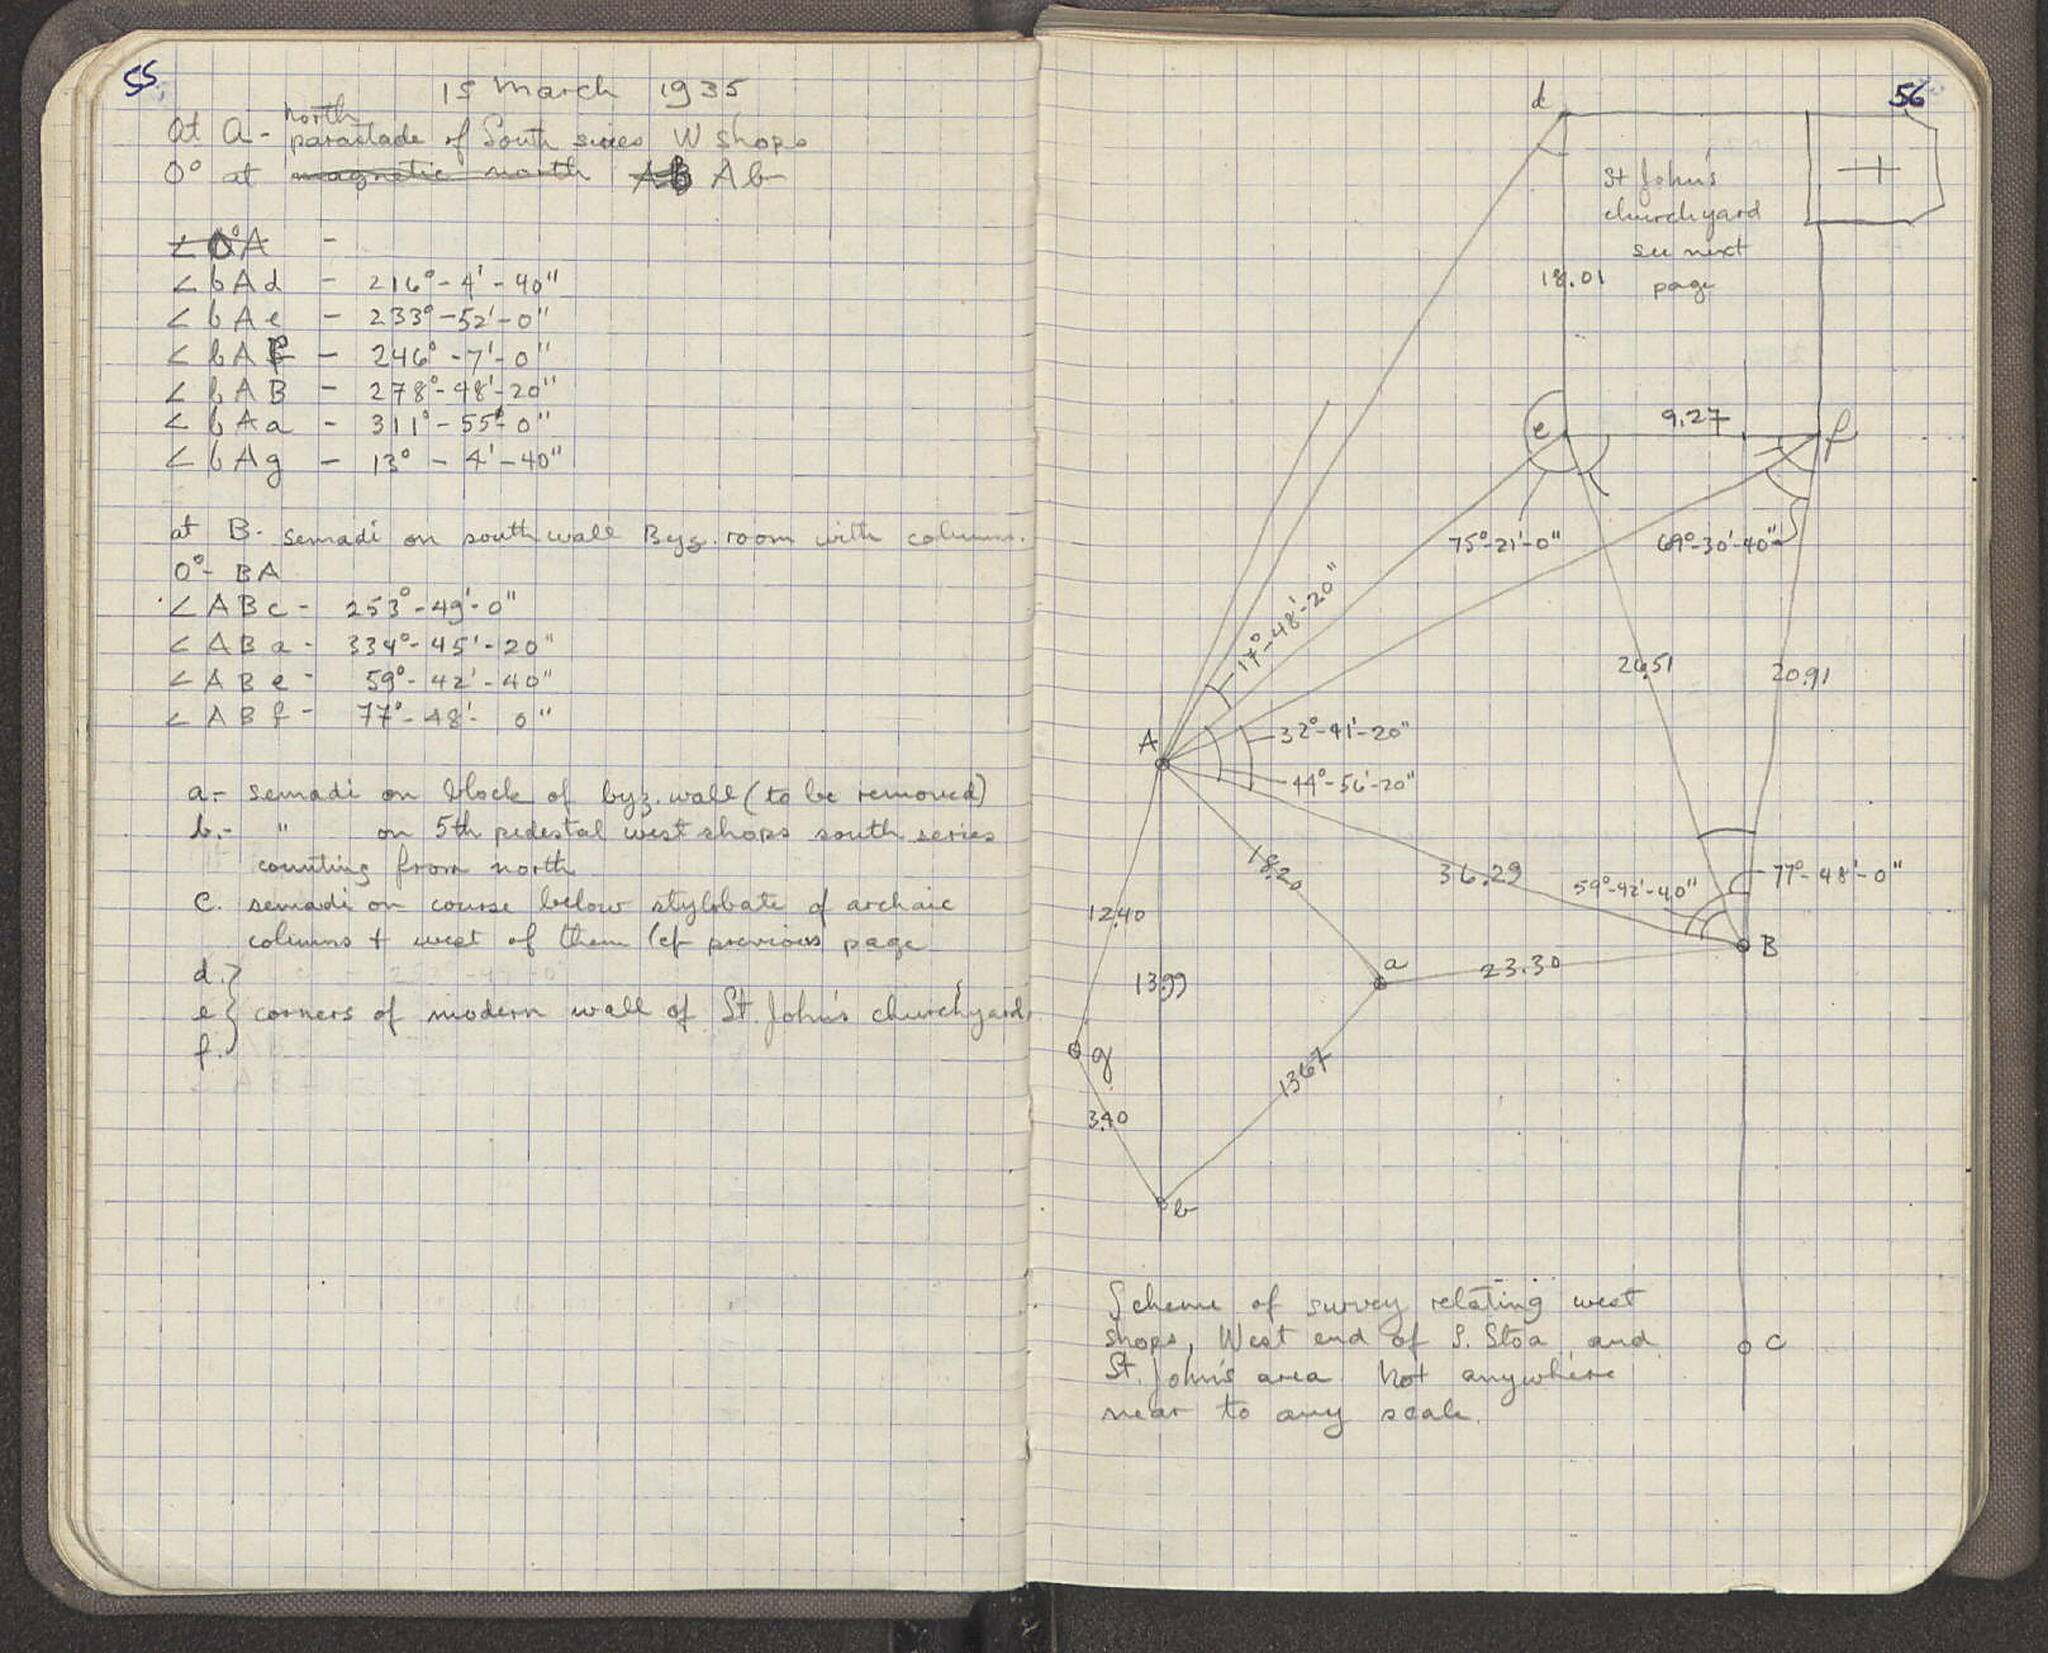 55
15 March 1935
north
At A - parastade of South series W shops
0° at magnetic north AB Ab
∠ 0°A -
∠ b A d - 216° - 4' - 40"
∠ b A e - 233° - 52' - 0"
∠ b A f - 246° - 7' - 0"
∠ b A B - 278° - 48' - 20"
∠ b A a - 311° - 55' - 0"
∠ b A g - 13° - 4' - 40"
at B - semadi on south wall Byz. room with columns.
0° - BA
∠ A B c - 253° - 49' - 0"
∠ A B a - 334° - 45' - 20"
∠ A B e - 59° - 42' - 40"
∠ A B f - 77° - 48' - 0"
a - semadi on block of byz. wall (to be removed)
b. - " on 5th pedestal west shops south series
counting from north
c. semadi on course below stylobate of archaic
columns + west of them (cf previous page
d.
e } corners of modern wall of St. John's churchyard
f.
56
d
St John's
churchyard
see next
page
18.01
e
9.27
f
75°-21'-0"
69°-30'-40"
17°-48'-20"
26.51
20.91
A
32°-41'-20"
44°-56'-20"
18.20
36.29
59°-42'-40"
77°-48'-0"
12.40
B
a
23.30
13.99
g
13.67
3.40
b
Scheme of survey relating west
shops, West end of S. Stoa and
c
St. John's area. Not anywhere
near to any scale.